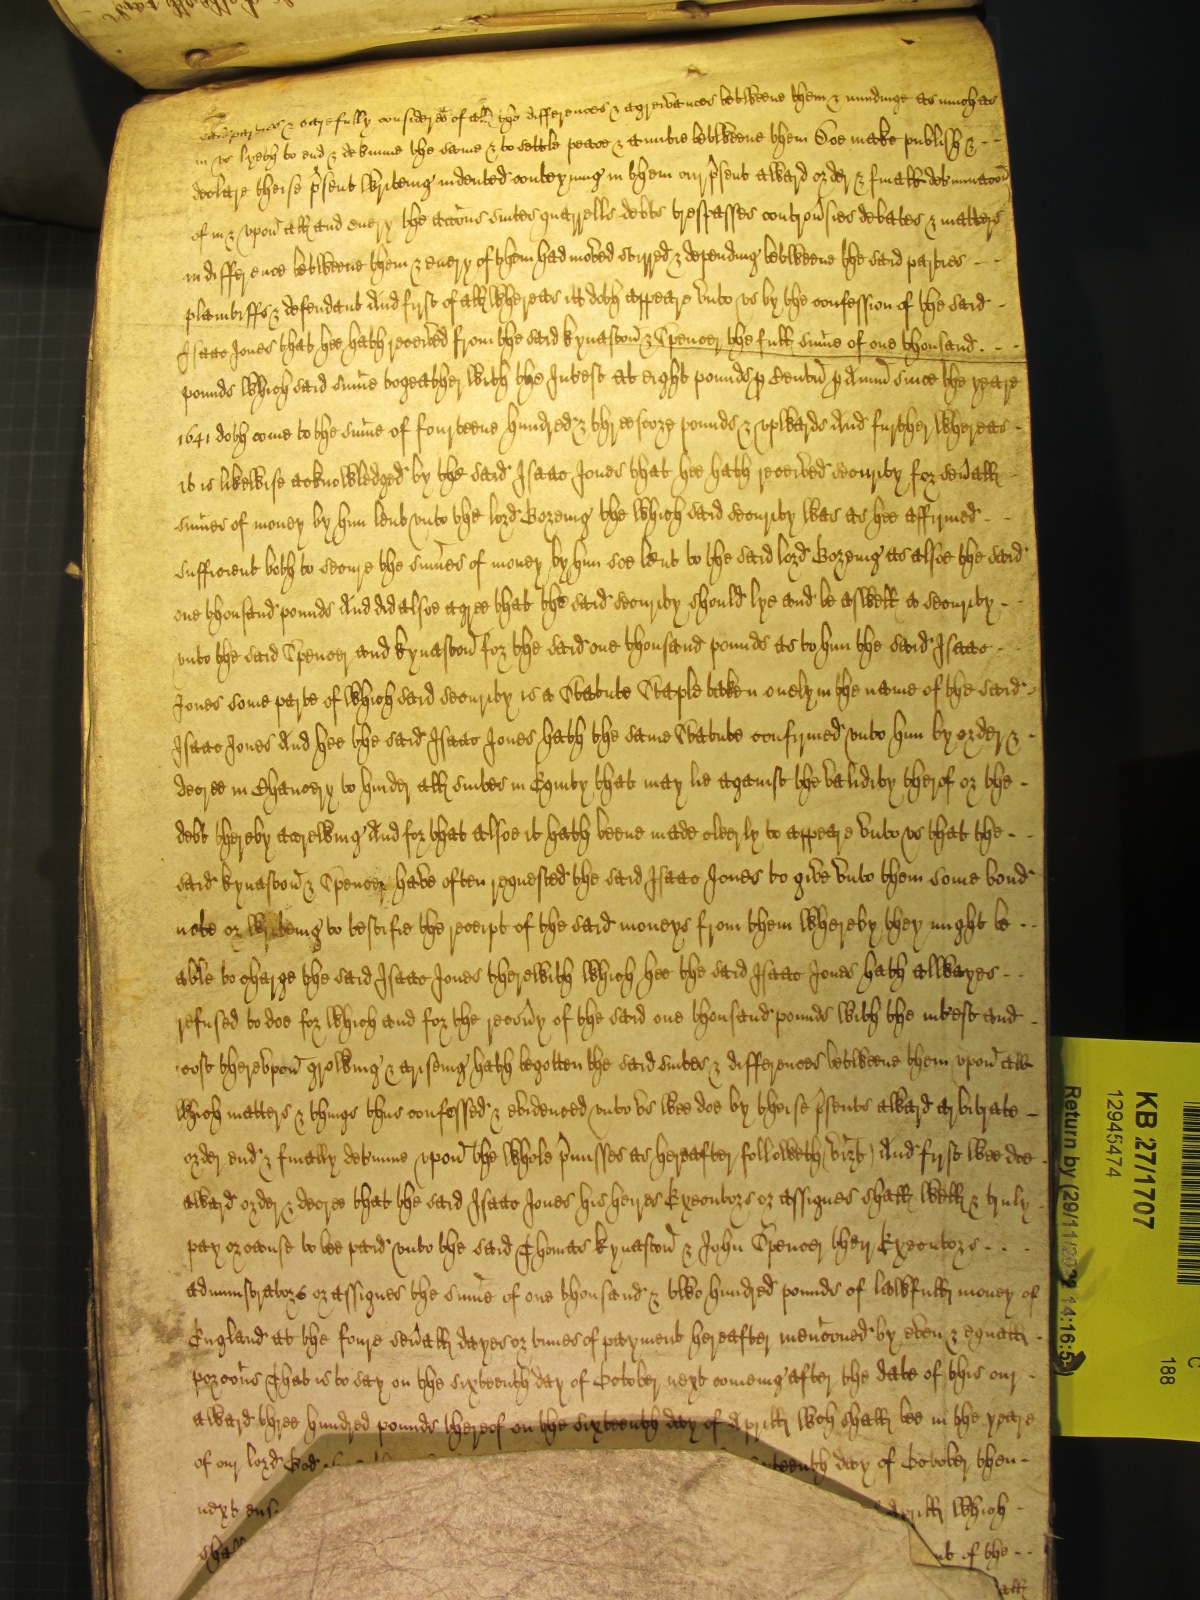 said parties & carefully considered of all the differences & agreivances betweene them & mindinge as much as
in vs lyeth to end & det'mine the same & to settle peace & amitie betweene them Doe make publish & - -
declare theise p'sent writeing indented conteyning in them our p'sent award order & finall det'minacon
of in & vpon all and euery the accons suites quarrells debts trespasses controu'sies debates & matters
in difference betweene them & euery of them had moved stirred & depending betweene the said parties - -
plaintiffs & defendant And first of all whereas itt doth appeare vnto vs by the confession of the said -
Isaac Jones that hee hath received from the said Kynaston & Spencer the full sume of one thousand - - -
pounds which said sume togeather with the Int'est at eight pounds p Centu p Annu since the yeare
1641 doth come to the sume of fourteene hundred & threescore pounds & vpwards And further whereas -
it is likewise acknowledged by the said Isaac Jones that hee hath received security for seu'all
sumes of money by him lent vnto the lord Goreing the which said security was as hee affirmed - -
sufficient both to secure the sumes of money by him soe lent to the said lord Goreing as alsoe the said
one thousand pounds And did alsoe agree that the said security should lye and be aswell a security - -
vnto the said Spencer and Kynaston for the said one thousand pounds as to him the said Isaac - -
Jones some parte of which said security is a Statute Staple taken onely in the name of the said -
Isaac Jones And hee the said Isaac Jones hath the same Statute confirmed vnto him by order & -
decree in Chancery to hinder all suites in Equity that may lie against the validity therof or the -
debt thereby accrewing And for that alsoe it hath beene made cleerly to appeare vnto vs that the - -
said Kynaston & Spencer have often requested the said Isaac Jones to give vnto them some bond
note or writeing to testifie the receipt of the said moneys from them whereby they might be - -
able to charge the said Isaac Jones therewith which hee the said Isaac Jones hath allwayes - -
refused to doe for which and for the recou'y of the said one thousand pounds with the int'est and -
cost therevpon growing & ariseing hath begotten the said suites & differences betweene them vpon all
which matters & things thus confessed & evidenced vnto vs wee doe by theise p'sents award arbitrate -
order end & finally det'mine vpon the whole p'misses as hereafter followeth (vizt) And first wee doe -
award order & decree that the said Isaac Jones his heires Executors or assignes shall well & truly -
pay or cause to bee paid vnto the said Thomas Kynaston & John Spencer their Executors - - -
administrators or assignes the sume of one thousand & two hundred pounds of lawfull money of
England at the foure seu'all dayes or times of payment hereafter menconed by even & equall -
porcons That is to say on the sixteenth day of October next comeing after the date of this our -
award three hundred pounds thereof on the sixteenth day of Aprill wch shall bee in the yeare
of our lord God teenth day of October then -
next ens Aprill which -
shal of the - -
all
KB 27/1707
12945474
Return by (29/11/ 14:16:5
188
C